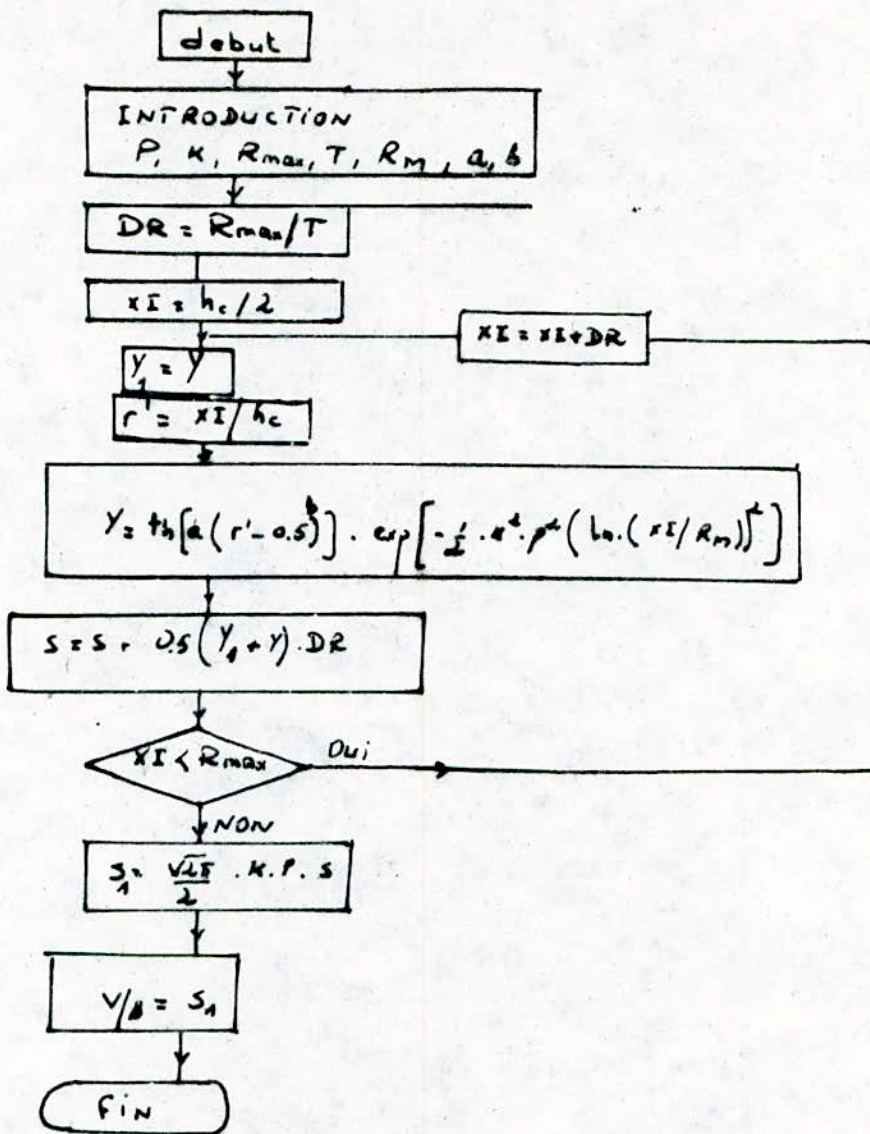 debut
INTRODUCTION
P, K, Rmax, T, RM, a, b
DR = Rmax/T
xI = hc/2
xI = xI+DR
Y1 = Y
r' = xI/hc
Y = th[a(r'-0.5)^b] . exp[-1/2 . K² . P² (Ln.(xI/RM))²]
S = S + 0.5(Y1+Y).DR
xI < Rmax
Oui
NON
S1 = √2π/2 . K.P.S
= S1
FiN